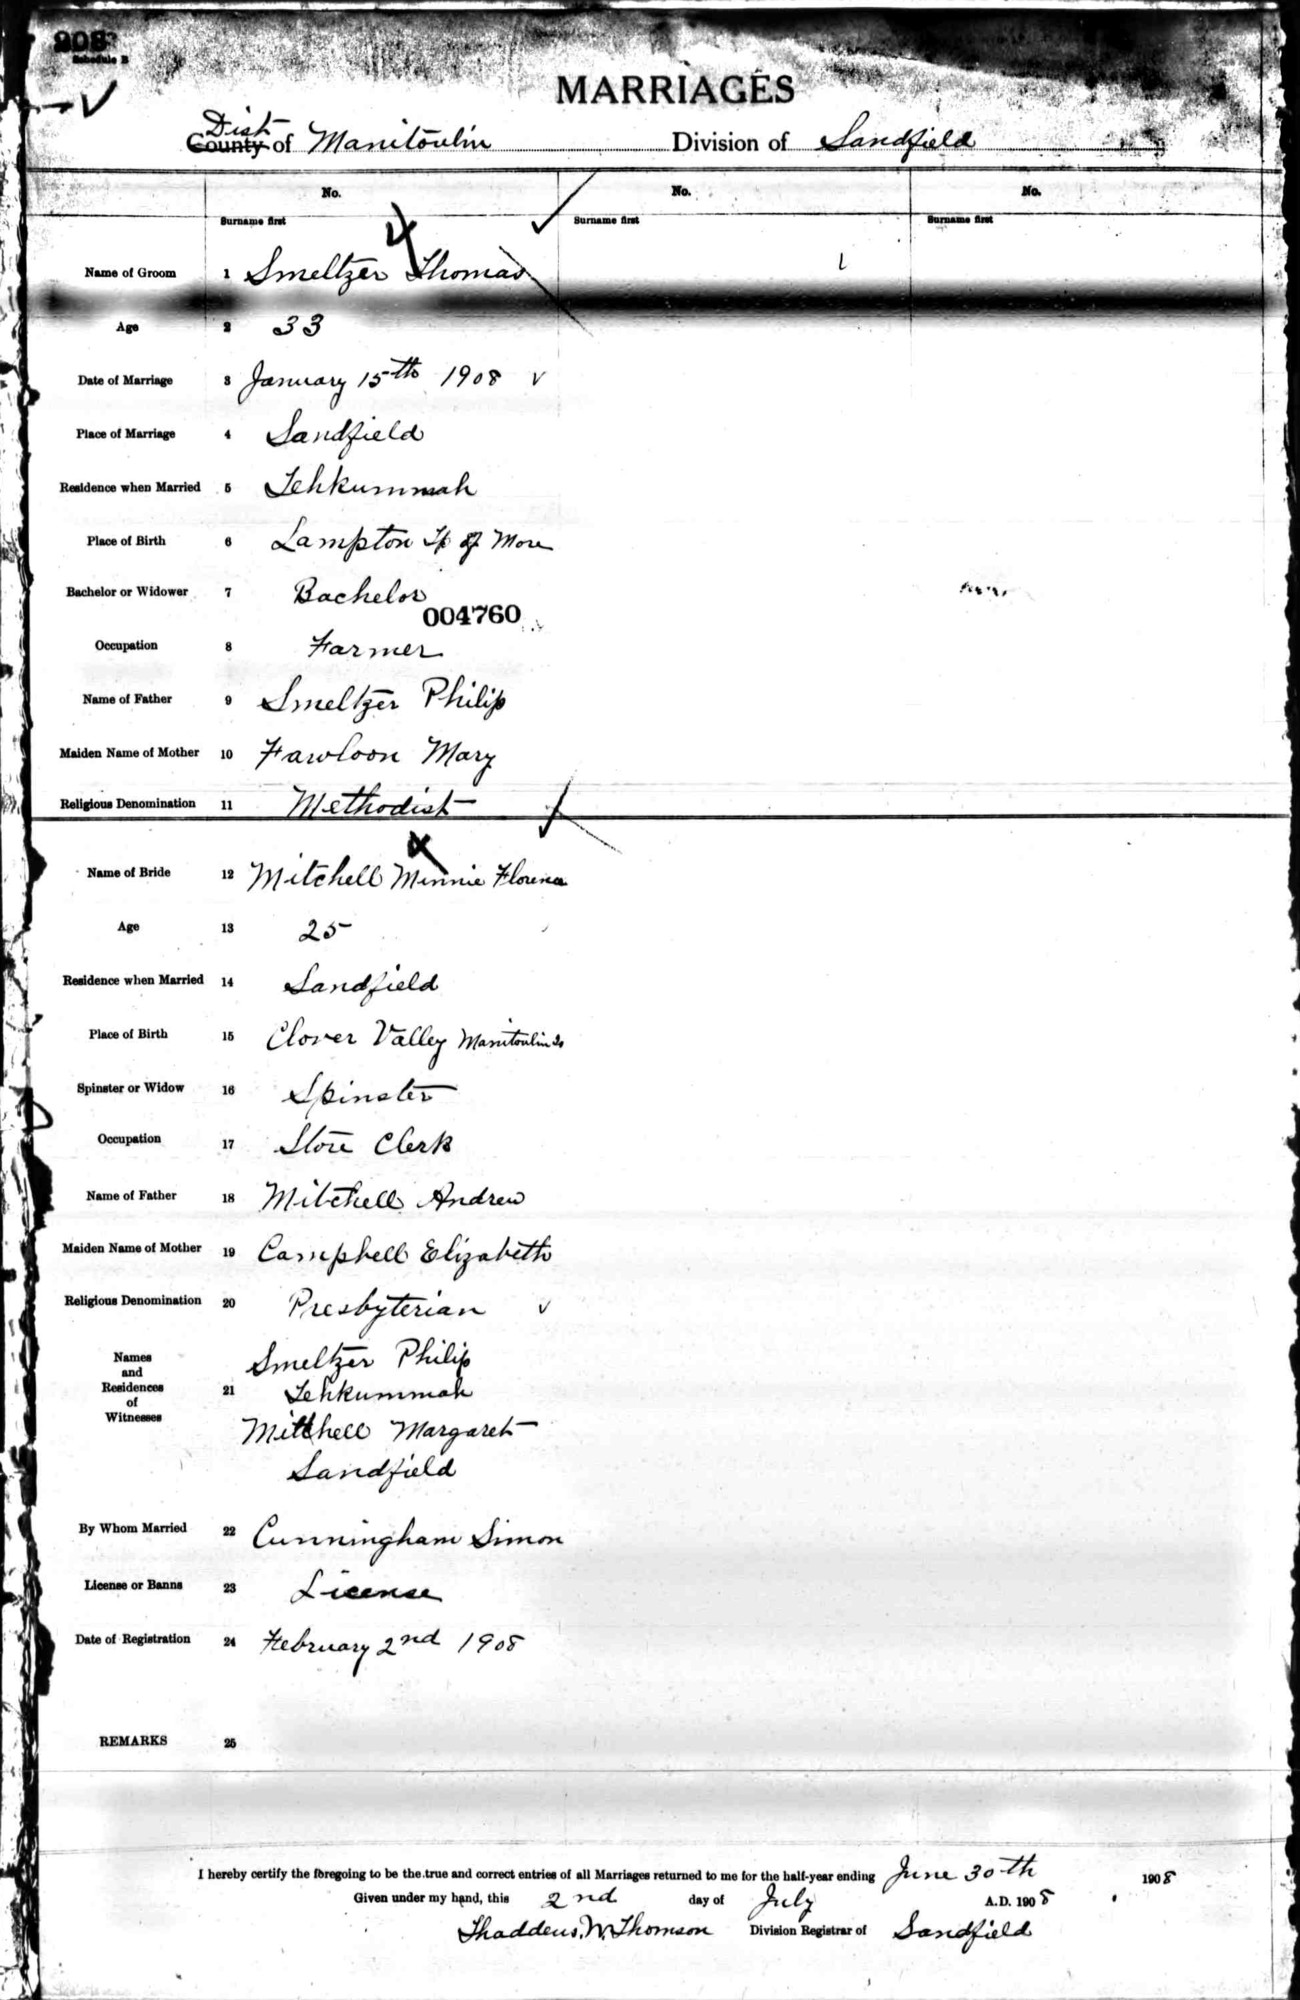 208
Schedule B
MARRIAGES
Dist
County of Manitoulin Division of Sandfield
No. No. No.
Surname first Surname first Surname first
4
Name of Groom 1 Smeltzer Thomas
Age 2 33
Date of Marriage 3 January 15th 1908
Place of Marriage 4 Sandfield
Residence when Married 5 Tehkummah
Place of Birth 6 Lampton Tp of More
Bachelor or Widower 7 Bachelor
004760
Occupation 8 Farmer
Name of Father 9 Smeltzer Philip
Maiden Name of Mother 10 Mary
Religious Denomination 11 Methodist
4
Name of Bride 12 Mitchell Minnie Florence
Age 13 25
Residence when Married 14 Sandfield
Place of Birth 15 Clover Valley Manitoulin Is
Spinster or Widow 16 Spinster
Occupation 17 Store Clerk
Name of Father 18 Mitchell Andrew
Maiden Name of Mother 19 Campbell Elizabeth
Religious Denomination 20 Presbyterian
Names
and
Residences
of
Witnesses
21
Smeltzer Philip
Tehkummah
Mitchell Margaret
Sandfield
By Whom Married 22 Cunningham Simon
License or Banns 23 License
Date of Registration 24 February 2nd 1908
REMARKS 25
I hereby certify the foregoing to be the true and correct entries of all Marriages returned to me for the half-year ending June 30th 1908
Given under my hand, this 2nd day of July A.D. 1908
Thaddeus. W. Thomson Division Registrar of Sandfield